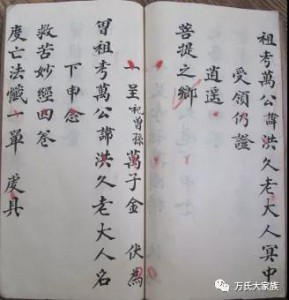 祖考萬公諱洪久老大人冥中
受領仍證
逍遥
菩提之鄉
一呈祀曾孫萬子金 伏為
曾祖考萬公諱洪久老大人名
下申念
救苦妙經四卷
度亡法懺一單 虔具
万氏大家族